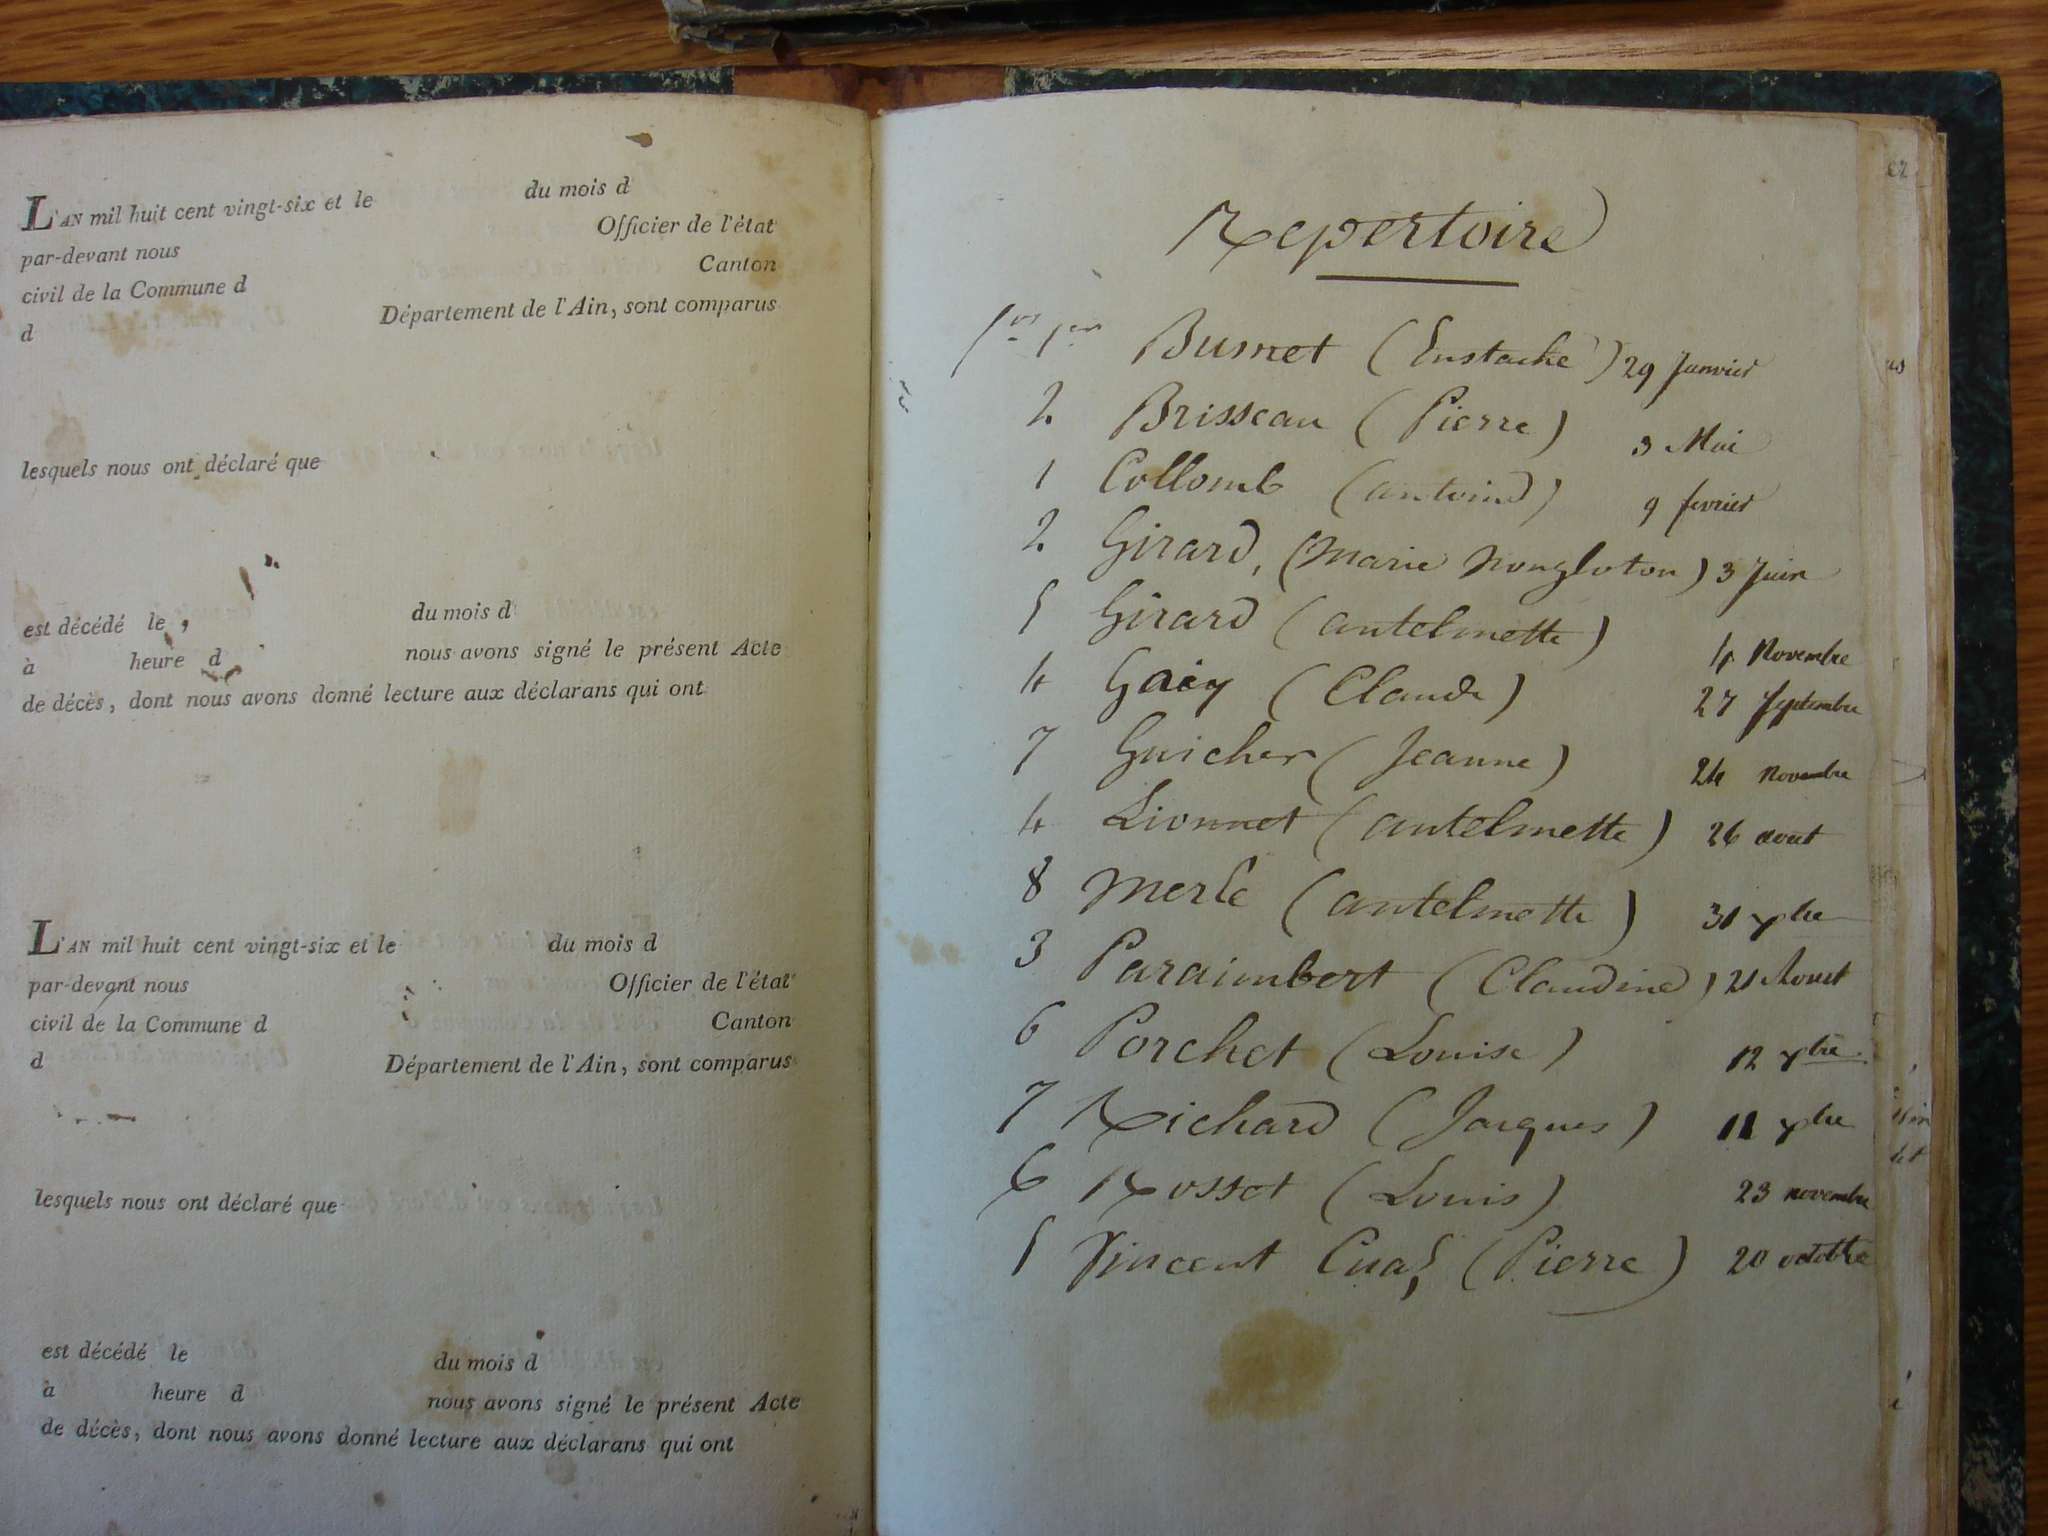 L'AN mil huit cent vingt-six et le du mois d
par-devant nous Officier de l'état
civil de la Commune d Canton
d Département de l'Ain, sont comparus
lesquels nous ont déclaré que
est décédé le du mois d
à heure d nous avons signé le présent Acte
de décès, dont nous avons donné lecture aux déclarans qui ont
L'AN mil huit cent vingt-six et le du mois d
par-devant nous Officier de l'état
civil de la Commune d Canton
d Département de l'Ain, sont comparus
lesquels nous ont déclaré que
est décédé le du mois d
à heure d nous avons signé le présent Acte
de décès, dont nous avons donné lecture aux déclarans qui ont
Repertoire
1er Burnet (Eustache) 29 Janvier
2 Brisseau (Pierre) 3 Mai
1 Collomb (antoine) 9 fevrier
2 Girard, (Marie) 3 Juin
5 Girard (antelmette) 4 Novembre
4 (Claude) 27 Septembre
7 Guicher (Jeanne) 24 Novembre
4 Lionnet (antelmette) 26 aout
8 Merle (antelmette) 31 xbre
3 Paraimbert (Claudine) 21 Aoust
6 Porchet (Louise) 12 xbre
7 Richard (Jacques) 11 xbre
6 Rosset (Louis) 23 novembre
5 Vincent (Pierre) 20 octobre